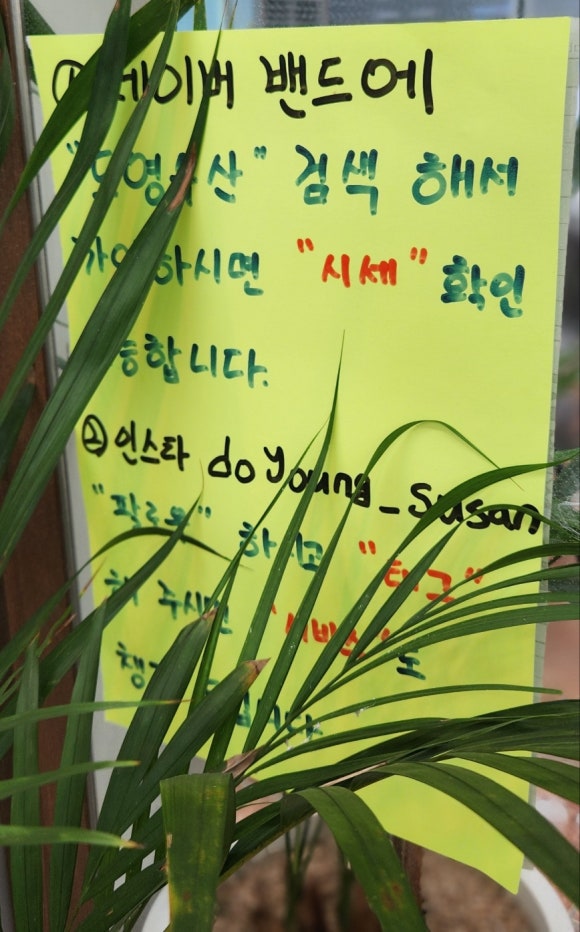 ① 네이버 밴드에
"도영수산" 검색 해서
가입하시면 "시세" 확인
가능합니다.
② 인스타 doyoung_susan
"팔로우" 하시고 "태그"
해 주시면 "서비스"도